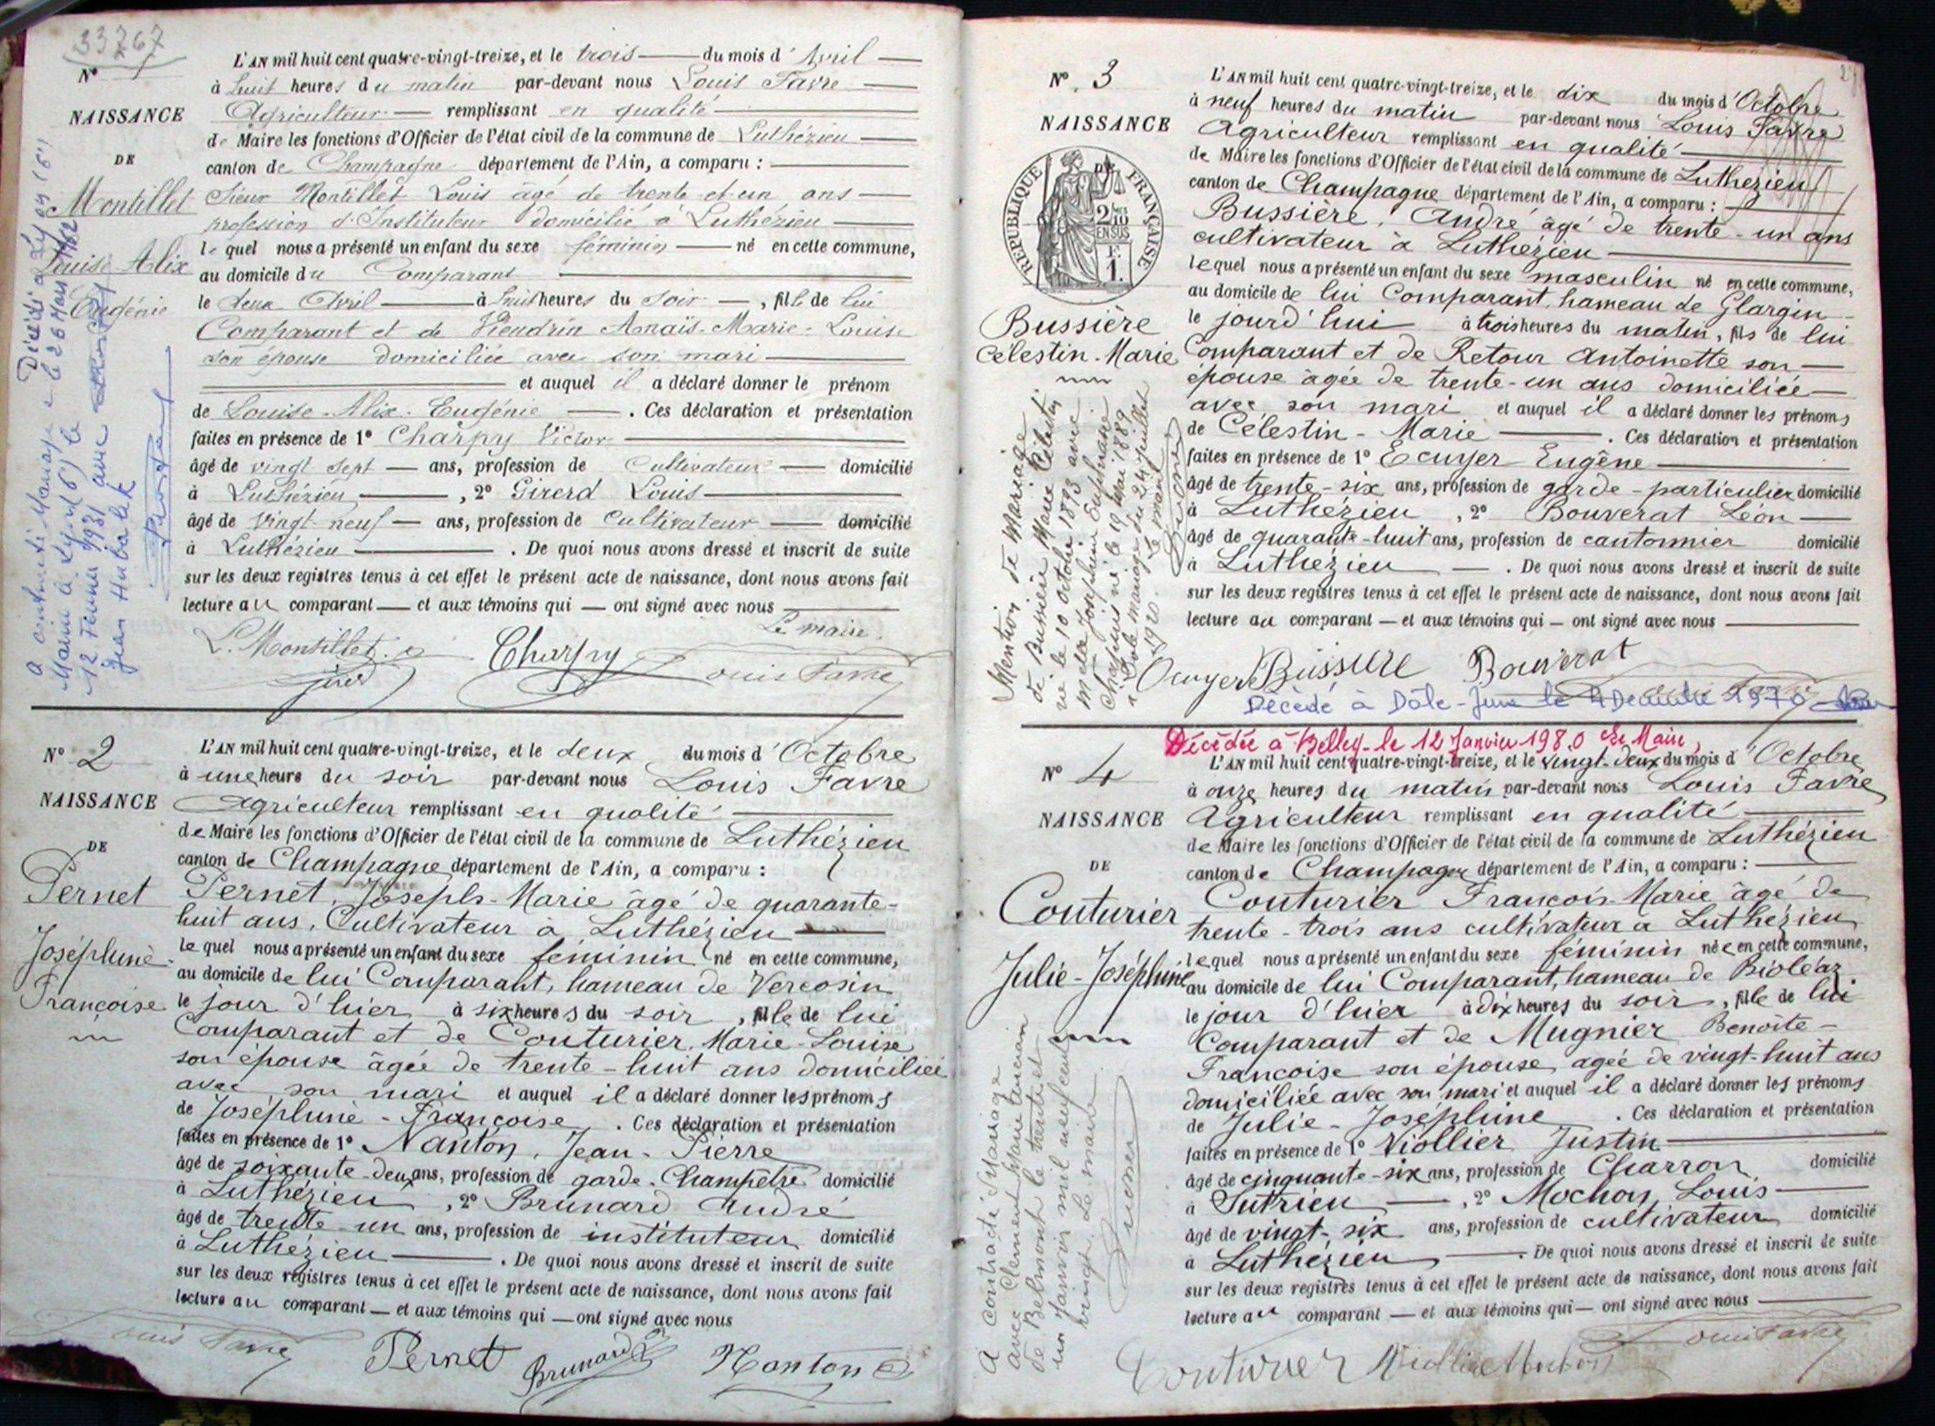 33767
N° 1
NAISSANCE
DE
Montillet
Louise Alix
Eugénie
L'AN mil huit cent quatre-vingt-treize, et le trois du mois d' Avril
à huit heures du matin par-devant nous Louis Favre
Agriculteur remplissant en qualité
de Maire les fonctions d'Officier de l'état civil de la commune de Luthézieu
canton de Champagne département de l'Ain, a comparu :
Sieur Montillet Louis âgé de trente et un ans
profession d'Instituteur domicilié à Luthézieu
lequel nous a présenté un enfant du sexe féminin né en cette commune,
au domicile du Comparant
le deux Avril à huit heures du soir, fille de lui
Comparant et de Anaïs-Marie-Louise
son épouse domiciliée avec son mari
et auquel il a déclaré donner le prénom
de Louise-Alix-Eugénie. Ces déclaration et présentation
faites en présence de 1° Charpy Victor
âgé de vingt sept ans, profession de Cultivateur domicilié
à Luthézieu, 2° Girerd Louis
âgé de vingt-neuf ans, profession de Cultivateur domicilié
à Luthézieu. De quoi nous avons dressé et inscrit de suite
sur les deux registres tenus à cet effet le présent acte de naissance, dont nous avons fait
lecture au comparant et aux témoins qui ont signé avec nous
Le maire
L. Montillet Charpy Louis Favre
A contracté Mariage
Mairie à Lyon (6°) le
12 Février 1931 avec
Jean
Décédée à Lyon (6°)
le 26 Mars
N° 2
NAISSANCE
DE
Pernet
Joséphine
Françoise
L'AN mil huit cent quatre-vingt-treize, et le deux du mois d' Octobre
à une heure du soir par-devant nous Louis Favre
Agriculteur remplissant en qualité
de Maire les fonctions d'Officier de l'état civil de la commune de Luthézieu
canton de Champagne département de l'Ain, a comparu :
Pernet, Joseph-Marie âgé de quarante-
huit ans, Cultivateur à Luthézieu
lequel nous a présenté un enfant du sexe féminin né en cette commune,
au domicile de lui Comparant, hameau de Vercosin
le jour d'hier à six heures du soir, fille de lui
Comparant et de Couturier, Marie-Louise
son épouse âgée de trente-huit ans domiciliée
avec son mari et auquel il a déclaré donner les prénoms
de Joséphine-Françoise. Ces déclaration et présentation
faites en présence de 1° Nanton, Jean-Pierre
âgé de soixante deux ans, profession de garde-Champêtre domicilié
à Luthézieu, 2° Brunard André
âgé de trente-un ans, profession de instituteur domicilié
à Luthézieu. De quoi nous avons dressé et inscrit de suite
sur les deux registres tenus à cet effet le présent acte de naissance, dont nous avons fait
lecture au comparant et aux témoins qui ont signé avec nous
Louis Favre Pernet Brunard Nanton
N° 3
NAISSANCE
DE
RÉPUBLIQUE FRANÇAISE
Bussière
Célestin-Marie
L'AN mil huit cent quatre-vingt-treize, et le dix du mois d' Octobre
à neuf heures du matin par-devant nous Louis Favre
Agriculteur remplissant en qualité
de Maire les fonctions d'Officier de l'état civil de la commune de Luthézieu
canton de Champagne département de l'Ain, a comparu :
Bussière, André âgé de trente-un ans
cultivateur à Luthézieu
lequel nous a présenté un enfant du sexe masculin né en cette commune,
au domicile de lui Comparant, hameau de Glargin
le jourd'hui à trois heures du matin, fils de lui
Comparant et de Retour Antoinette son
épouse âgée de trente-un ans domiciliée
avec son mari et auquel il a déclaré donner les prénoms
de Célestin-Marie. Ces déclaration et présentation
faites en présence de 1° Ecuyer Eugène
âgé de trente-six ans, profession de garde-particulier domicilié
à Luthézieu, 2° Bouverat Léon
âgé de quarante-huit ans, profession de cantonnier domicilié
à Luthézieu. De quoi nous avons dressé et inscrit de suite
sur les deux registres tenus à cet effet le présent acte de naissance, dont nous avons fait
lecture au comparant et aux témoins qui ont signé avec nous
Ecuyer Bussière Bouverat
Décédé à Dole-Jura le 4 Décembre 1970
Mention de Mariage
de Bussière Marie Célestin
né le 10 octobre 1893 avec
Joséphine Euphrasie
née le 19 Mai 1889
à Dole mariage du 24 juillet
1920. le maire
N° 4
NAISSANCE
DE
Couturier
Julie-Joséphine
Décédée à Belley le 12 Janvier 1980 Le Maire,
L'AN mil huit cent quatre-vingt-treize, et le vingt-deux du mois d' Octobre
à onze heures du matin par-devant nous Louis Favre
Agriculteur remplissant en qualité
de Maire les fonctions d'Officier de l'état civil de la commune de Luthézieu
canton de Champagne département de l'Ain, a comparu :
Couturier François-Marie âgé de
trente-trois ans cultivateur à Luthézieu
lequel nous a présenté un enfant du sexe féminin née en cette commune,
au domicile de lui Comparant, hameau de Bioléaz
le jour d'hier à dix heures du soir, fille de lui
Comparant et de Mugnier Benoîte-
Françoise son épouse agée de vingt-huit ans
domiciliée avec son mari et auquel il a déclaré donner les prénoms
de Julie-Joséphine. Ces déclaration et présentation
faites en présence de 1° Viollier Justin
âgé de cinquante-six ans, profession de Charron domicilié
à Sutrieu, 2° Mochon, Louis
âgé de vingt-six ans, profession de cultivateur domicilié
à Luthézieu. De quoi nous avons dressé et inscrit de suite
sur les deux registres tenus à cet effet le présent acte de naissance, dont nous avons fait
lecture au comparant et aux témoins qui ont signé avec nous
Louis Favre
Couturier Viollier Mochon
A contracté Mariage
avec Clément Marie
de Belmont le trente et
un janvier mil neuf cent
vingt. Le maire